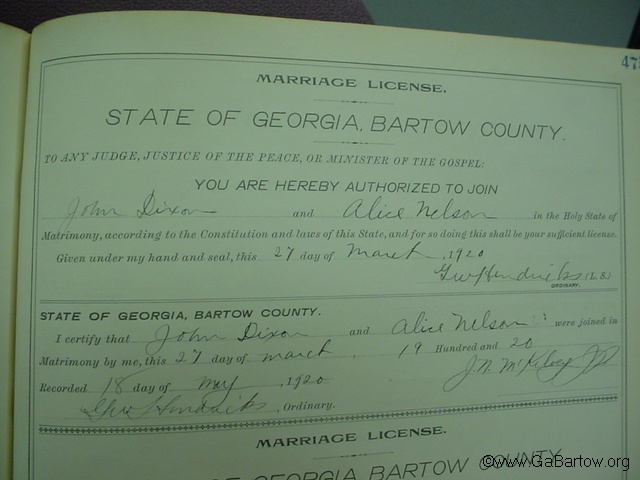 47
MARRIAGE LICENSE.
STATE OF GEORGIA, BARTOW COUNTY.
TO ANY JUDGE, JUSTICE OF THE PEACE, OR MINISTER OF THE GOSPEL:
YOU ARE HEREBY AUTHORIZED TO JOIN
John Dixon and Alice Nelson in the Holy State of
Matrimony, according to the Constitution and laws of this State, and for so doing this shall be your sufficient license.
Given under my hand and seal, this 27 day of March, 1920
GW Hendricks (L. S.)
ORDINARY.
STATE OF GEORGIA, BARTOW COUNTY.
I certify that John Dixon and Alice Nelson were joined in
Matrimony by me, this 27 day of March, 19 Hundred and 20
J.N. McKelvey JP
Recorded 18 day of May, 1920
GW Hendricks, Ordinary.
MARRIAGE LICENSE.
OF GEORGIA, BARTOW COUNTY
©www.GaBartow.org